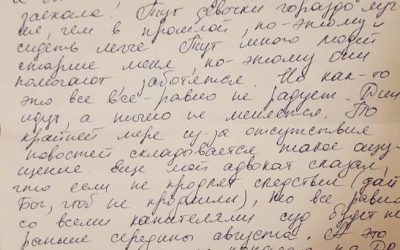 заехала! Тут девочки гораздо луч
ше, чем в прошлой, по-этому и
сидеть легче. Тут много людей
старше меня, по-этому они
помогают, заботятся. Но как-то
это все всё-равно не радует. Дни
идут, а ничего не меняется. По
крайней мере из-за отсутствия
новостей складывается такое ощу
щение. Еще мой адвокат сказал,
что если не продлят следствие (дай
Бог, чтоб не продлили), то все равно
со всеми канителями суд будет не
раньше середины августа. А это